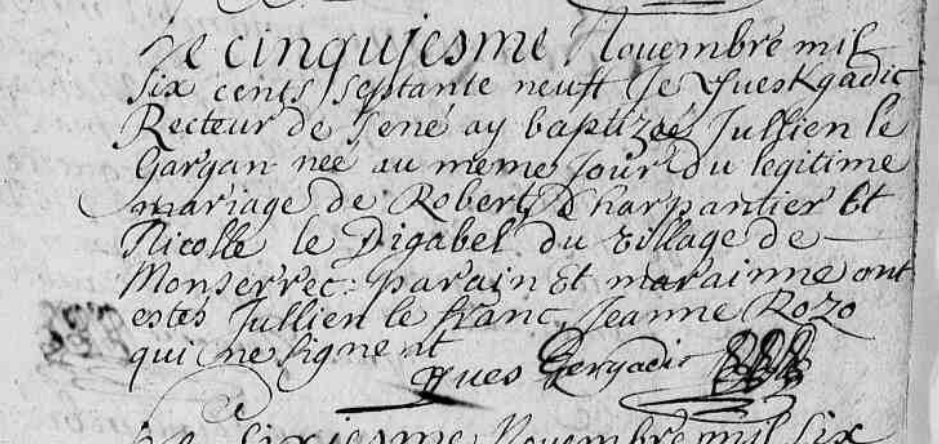 Le cinquiesme Novembre mil
six cents septante neuft Je Yves Kgadic
Recteur de Sené ay baptizéé Jullien le
Gargan nee au meme jour du legitime
mariage de Robert Charpantier Et
Nicolle le Digabel du village de
Monserrec: parain Et marainne ont
estés Jullien le franc, Jeanne Rozo
qui ne signent
Yves Gergadic
Le sixiesme Novembre mil six